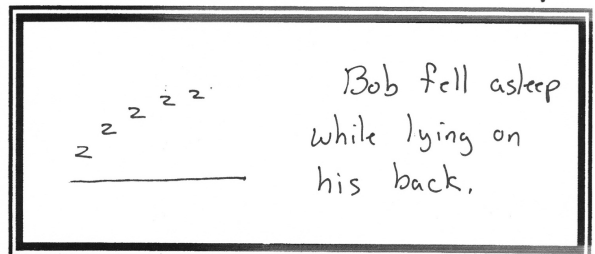 z z z z z
Bob fell asleep
while lying on
his back.